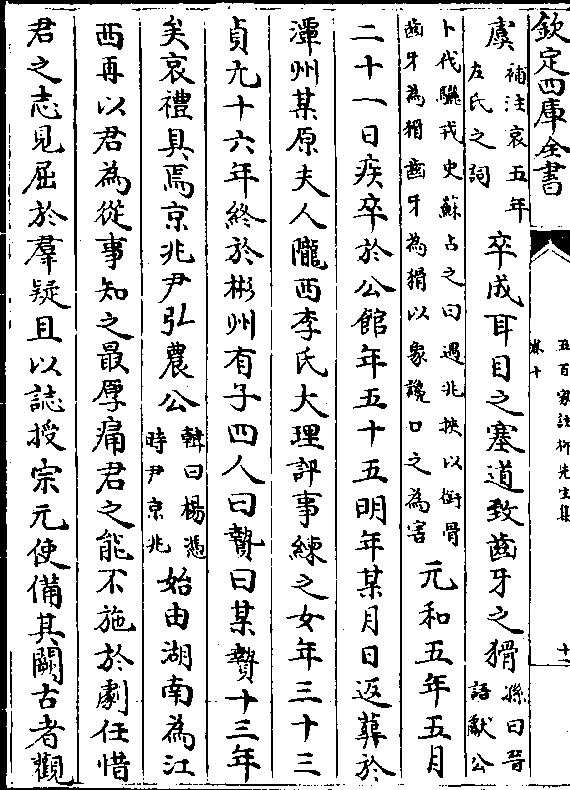 欽定四庫全書
五百家註柳先生集
卷十
十二
虞補注哀五年左氏之詞卒成耳目之塞道致齒牙之猾孫曰晉語獻公
卜伐驪戎史蘇占之曰遇兆挾以銜骨齒牙為猾齒牙為猾以象讒口之為害元和五年五月
二十一日疾卒於公館年五十五明年某月日返葬於
潭州某原夫人隴西李氏大理評事練之女年三十三
貞元十六年終於彬州有子四人曰贄曰某贄十三年
矣哀禮具焉京兆尹弘農公韓曰楊憑時尹京兆始由湖南為江
西再以君為從事知之最厚痛君之能不施於劇任惜
君之志見屈於羣疑且以誌授宗元使備其闕古者觀